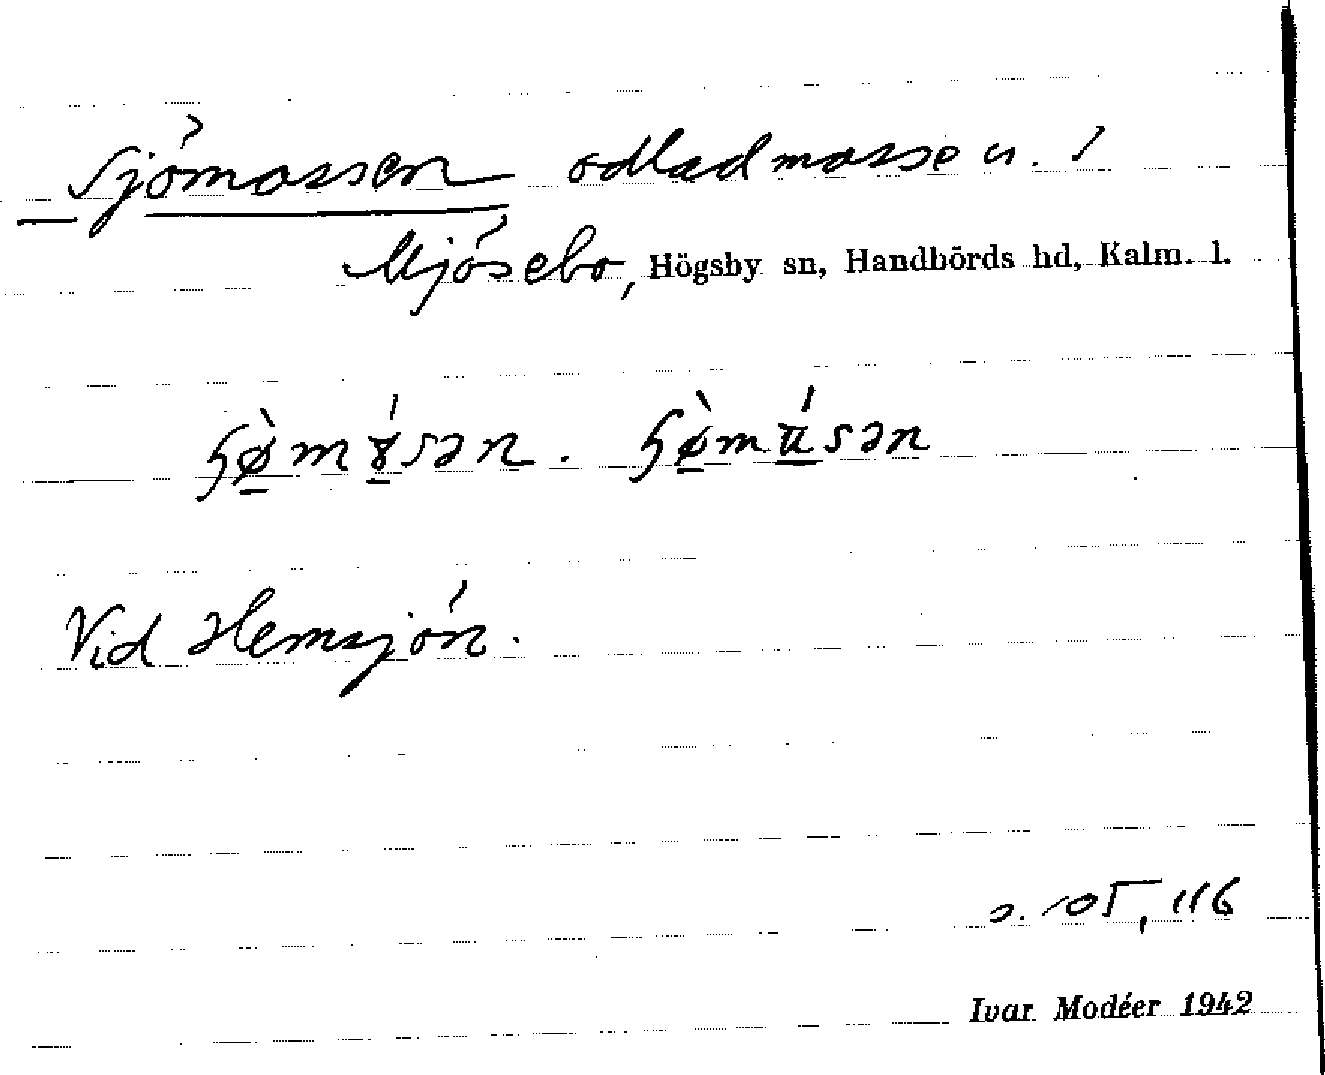 Sjömossen odlad mosse
Mjösebo, Högsby sn, Handbörds hd, Kalm. l.
Vid Hemsjön.
s. 105, 116
Ivar Modéer 1942